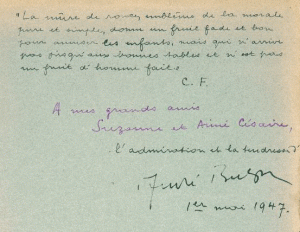 "La mûre de ronce, emblème de la morale
pure et simple, donne un fruit fade et bon
pour amuser les enfants, mais qui n'arrive
pas jusqu'aux bonnes tables et n'est pas
un fruit d'homme fait."
C. F.
A mes grands amis
Suzanne et Aimé Césaire,
l'admiration et la tendresse d'
André Breton
1er mai 1947.